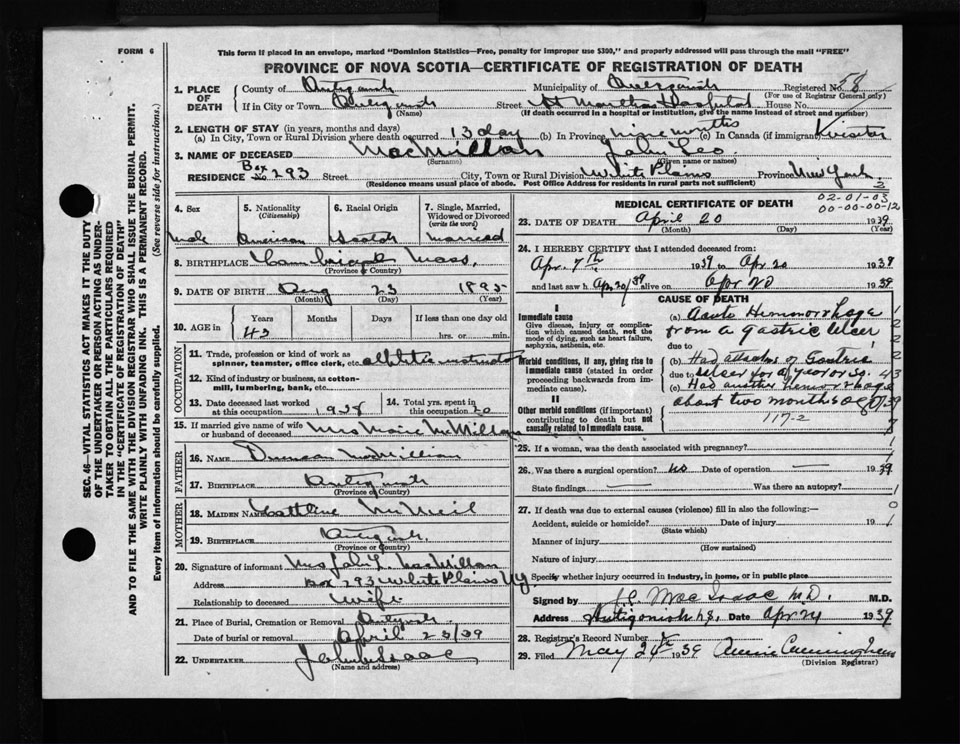 FORM 6
This form if placed in an envelope, marked "Dominion Statistics—Free, penalty for improper use $300," and properly addressed will pass through the mail "FREE"
PROVINCE OF NOVA SCOTIA—CERTIFICATE OF REGISTRATION OF DEATH
SEC. 46—VITAL STATISTICS ACT MAKES IT THE DUTY
OF THE UNDERTAKER OR PERSON ACTING AS UNDER-
TAKER TO OBTAIN ALL THE PARTICULARS REQUIRED
IN THE "CERTIFICATE OF REGISTRATION OF DEATH"
AND TO FILE THE SAME WITH THE DIVISION REGISTRAR WHO SHALL ISSUE THE BURIAL PERMIT.
WRITE PLAINLY WITH UNFADING INK. THIS IS A PERMANENT RECORD.
Every item of information should be carefully supplied. (See reverse side for instructions.)
1. PLACE OF DEATH
County of Antigonish Municipality of Antigonish Registered No. 58
(For use of Registrar General only)
If in City or Town Antigonish Street St Marthas Hospital House No.
(Name) (If death occurred in a hospital or institution, give the name instead of street and number)
2. LENGTH OF STAY (in years, months and days)
(a) In City, Town or Rural Division where death occurred 13 day (b) In Province nine months (c) In Canada (if immigrant) visitor
3. NAME OF DECEASED MacMillan John Leo
(Surname) (Given name or names)
RESIDENCE Box No 293 Street City, Town or Rural Division White Plains Province New York
(Residence means usual place of abode. Post Office Address for residents in rural parts not sufficient) 2
4. Sex
5. Nationality (Citizenship)
6. Racial Origin
7. Single, Married, Widowed or Divorced (write the word)
male American Scotch married
8. BIRTHPLACE Cambridge Mass.
(Province or Country)
9. DATE OF BIRTH Aug 23 1895
(Month) (Day)
10. AGE in Years Months Days If less than one day old
43 hrs. or min.
OCCUPATION
11. Trade, profession or kind of work as spinner, teamster, office clerk, etc. athletic instructor
12. Kind of industry or business, as cotton-mill, lumbering, bank, etc.
13. Date deceased last worked at this occupation 1938
14. Total yrs. spent in this occupation 20
15. If married give name of wife or husband of deceased Mrs Marie McMillan
FATHER
16. NAME Duncan McMillan
17. BIRTHPLACE Antigonish
(Province or Country)
MOTHER
18. MAIDEN NAME McNeil
19. BIRTHPLACE Antigonish
(Province or Country)
20. Signature of informant Mrs John L. MacMillan
Address Box 293 White Plains N.Y.
Relationship to deceased wife
21. Place of Burial, Cremation or Removal Antigonish
Date of burial or removal April 23/39
22. UNDERTAKER
(Name and address)
MEDICAL CERTIFICATE OF DEATH
02-01-03
00-00-00-12
23. DATE OF DEATH April 20 1939
(Month) (Day) (Year)
24. I HEREBY CERTIFY that I attended deceased from:
Apr. 7th 1939 to Apr 20 1939
and last saw h Apr 20/39 alive on Apr 20 1939
CAUSE OF DEATH
I
Immediate cause
Give disease, injury or complication which caused death, not the mode of dying, such as heart failure, asphyxia, asthenia, etc.
(a) Acute Hemmorrhage
from a gastric ulcer
due to
Morbid conditions, if any, giving rise to immediate cause (stated in order proceeding backwards from immediate cause).
(b) Had attacks of Gastric
due to ulser for a year or so.
(c) Had another hemorrhage
about two months ago
II
Other morbid conditions (if important) contributing to death but not causally related to immediate cause.
117-2
25. If a woman, was the death associated with pregnancy?
26. Was there a surgical operation? no Date of operation — 1939
State findings — Was there an autopsy?
27. If death was due to external causes (violence) fill in also the following:—
Accident, suicide or homicide? Date of injury 19
(State which)
Manner of injury
(How sustained)
Nature of injury
Specify whether injury occurred in industry, in home, or in public place
Signed by Mac Isaac M.D. M.D.
Address Antigonish N.S. Date Apr 24 1939
28. Registrar's Record Number
29. Filed May 24th 1939 Annie Cunningham
(Division Registrar)